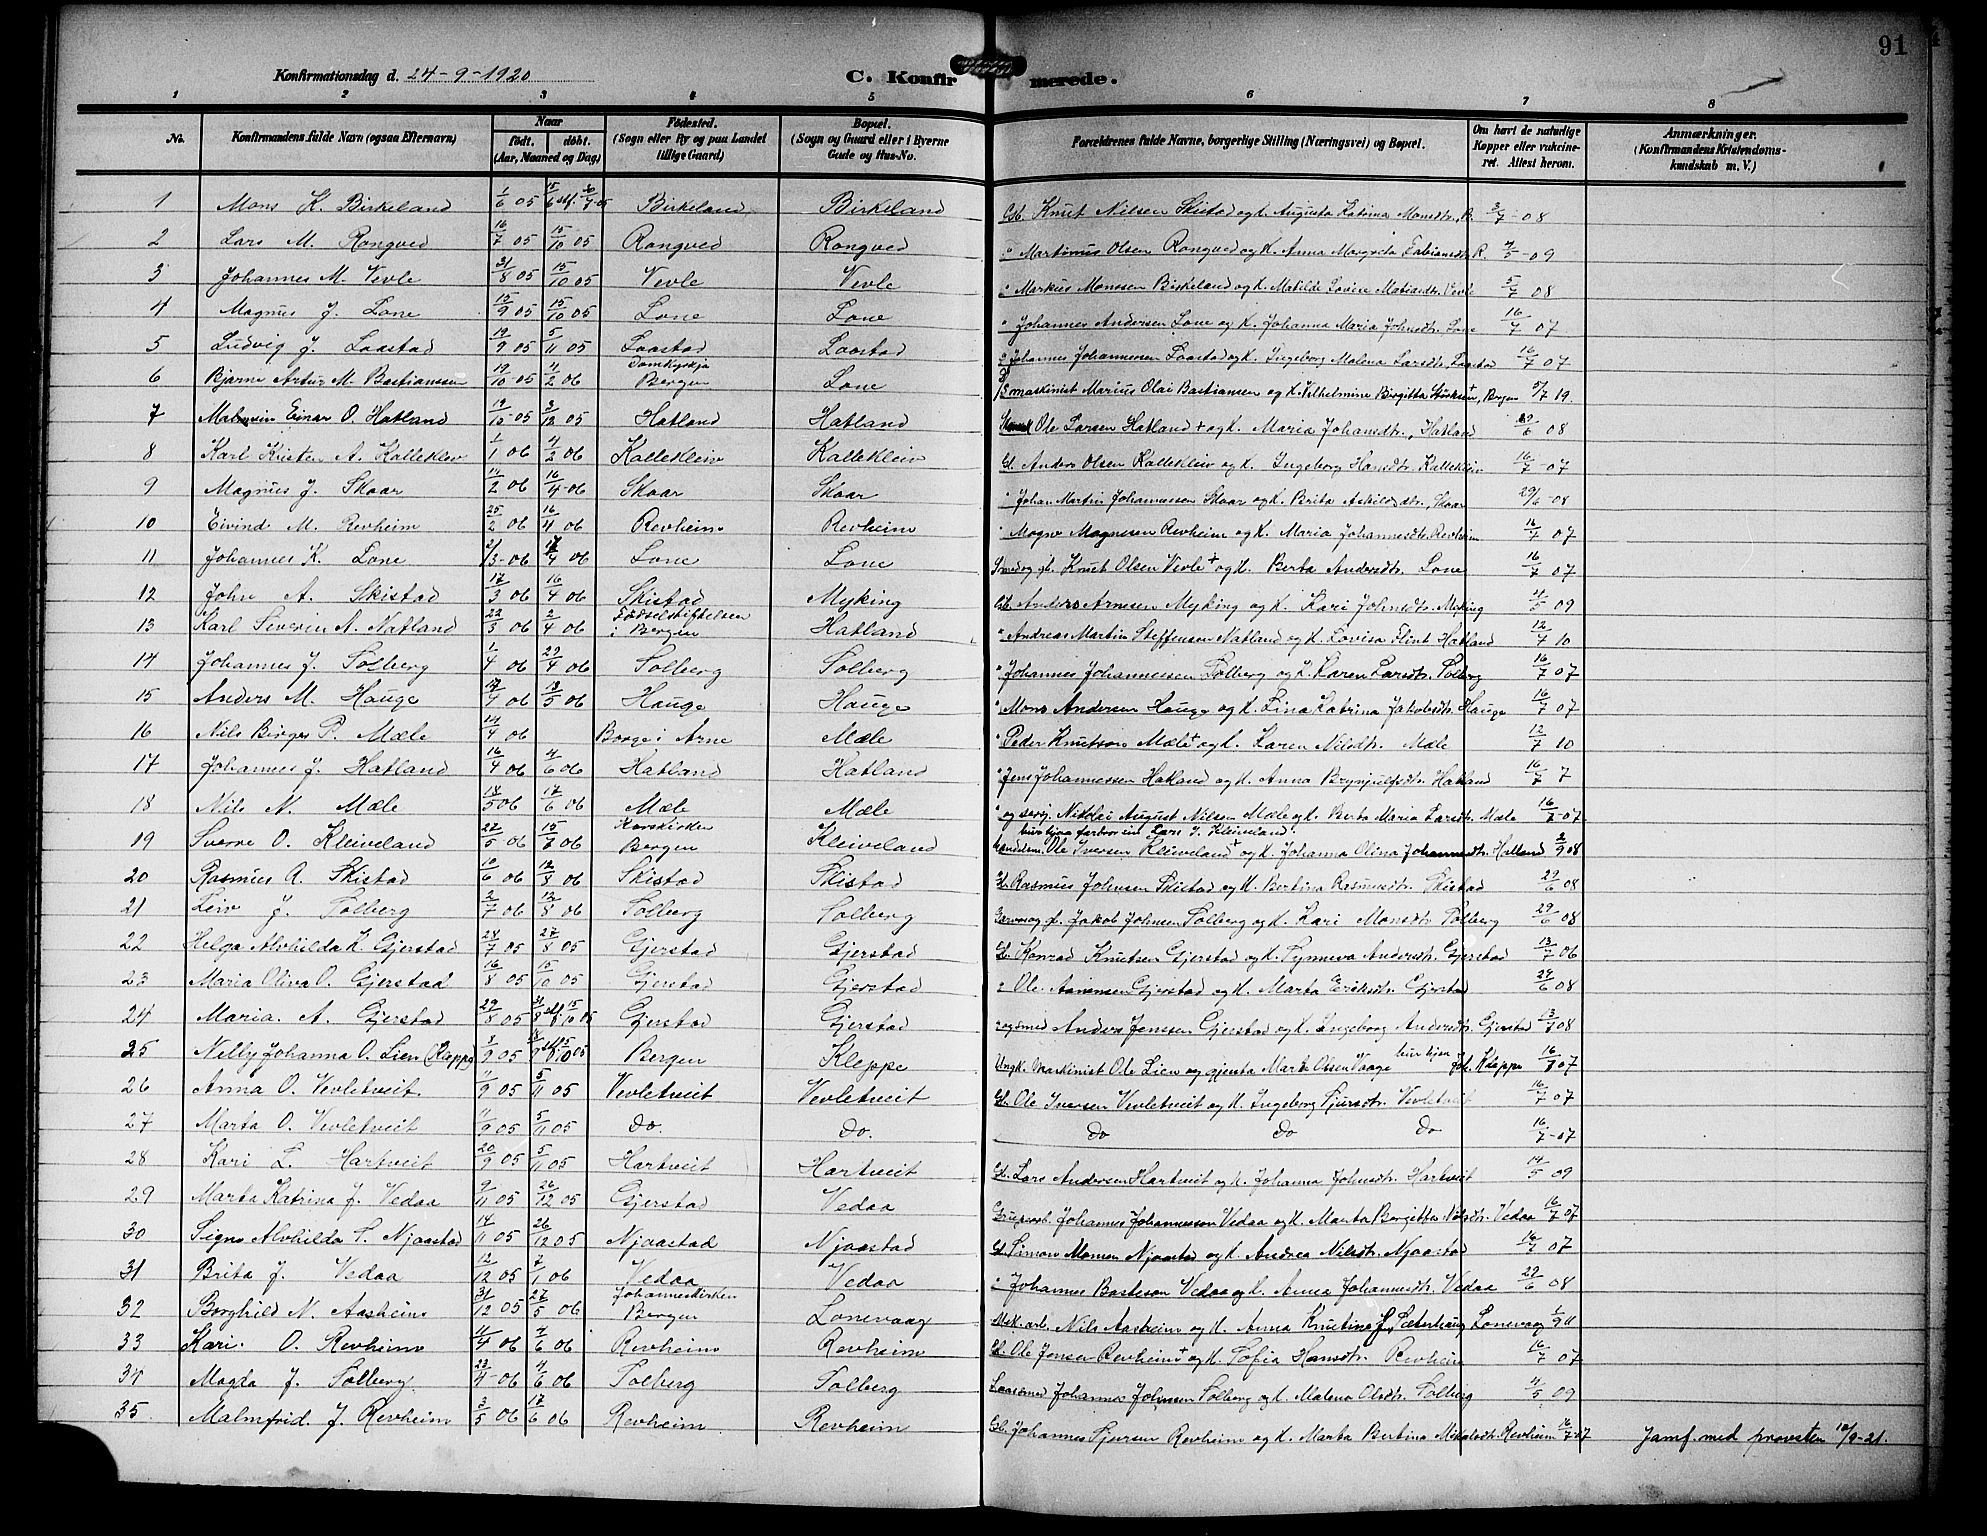 91
Konfirmationsdag d. 24-9-1920
C. Konfirmerede.
1 2 3 4 5 6 7 8
No.
Konfirmandens fulde Navn (ogsaa Efternavn)
Naar
født. døbt.
(Aar, Maaned og Dag)
Fødested.
(Sogn eller By og paa Landet
tillige Gaard)
Bopæl.
(Sogn og Gaard eller i Byerne
Gade og Hus-No.
Forældrenes fulde Navne, borgerlige Stilling (Næringsvei) og Bopæl.
Om havt de naturlige
Kopper eller vakcine-
ret. Attest herom.
Anmærkninger.
(Konfirmandens Kristendoms-
kundskab m. V.)
1 Mons K. Birkeland 1/6 05 Birkeland Birkeland Knut Nilsen Skistad og K. Augusta Katrina Monsdtr., B. 3/7-08
2 Lars M. Rongved 16/7 05 15/10 05 Rongved Rongved " Martinus Olsen Rongved og K. Anna Margreta Fabiansdtr. R. 4/5-09
3 Johannes M. Vevle 31/8 05 15/10 05 Vevle Vevle " Markus Monssen Birkeland og K. Matilde Lovise Vevle 5/7 08
4 Magnus J. Lone 15/9 05 15/10 05 Lone Lone " Johannes Andersen Lone og K. Johanna Maria Johnsdtr. Lone 16/7 07
5 Ludvig J. Laastad 19/9 05 5/11 05 Laastad Laastad " Johannes Johannessen Laastad og K. Ingeborg Malena Larsdtr. Laastad 16/7 07
6 Bjarne Artur M. Bastiansen 19/10-05 4/2 06 Domkyrkja Bergen Lone Marius Olai Bastiansen og K. Vilhelmine Birgitta +, Bergen 5/7 19.
7 Malmin Einar O. Hatland 19/10-05 3/12 05 Hatland Hatland Ole Larsen Hatland + og K. Maria Johansdtr., Hatland 29/6 08
8 Karl Kristen A. Kalleklev 1/1 06 4/2 06 Kallekleiv Kallekleiv Gb. Anders Olsen Kallekleiv og K. Ingeborg Hansdtr. Kallekleiv 16/7-07
9 Magnus J. Skaar 14/2 06 16/4-06 Skaar Skaar " Johan Martin Johannessen Skaar og K. Brita Askildsdtr., Skaar 29/6-08
10 Eivind M. Revheim 25/2 06 16/4 06 Revheim Revheim " Mogne Magnesen Revheim og K. Maria Johannesdtr. Revheim 16/7 07
11 Johannes K. Lone 2/3-06 /4 06 Lone Lone Smed og gb. Knut Olsen Vevle + og K. Berta Andersdtr. Lone 16/7 07
12 John A. Skistad 17/3 06 16/4 06 Skistad Myking Gb. Anders Arnesen Myking og K. Kari Johnsdtr. Myking 4/5 09
13 Karl Severin A. Natland 22/3 06 2/4 06 Fødselsstiftelsen i Bergen Hatland " Andreas Martin Steffensen Natland og K. Lovisa Flint Hatland 12/7 10
14 Johannes J. Solberg 1/4 06 29/4 06 Solberg Solberg " Johannes Johannessen Solberg og K. Karen Larsdtr. Solberg 16/7 07
15 Anders M. Hauge 17/4 06 13/5 06 Hauge Hauge " Mons Andersen Hauge og K. Lina Katrina Jakobsdtr. Hauge 16/7 07
16 Nils Birger P. Mæle 14/4 06 Borge i Arne Mæle " Peder Knutson Mæle + og K. Karen Nilsdtr. Mæle 12/7 10
17 Johannes J. Hatland 16/4 06 4/6 06 Hatland Hatland " Jens Johannessen Hatland og K. Anna Brynjulfsdtr. Hatland 16/7 7
18 Nils N. Mæle 18/5 06 17/6 06 Mæle Mæle " og serg. Nikolai August Nilsen Mæle og K. Berta Maria Larsdtr. Mæle 16/7-07
19 Sverre O. Kleiveland 22/5 06 15/7 06 Korskirken Bergen Kleiveland bur hjaa farbror sin Lars I. Kleiveland. Ole Iversen Kleiveland + og K. Johanna Olina Johannesdtr. Hatland 2/9 08
20 Rasmus A. Skistad 10/6 06 12/8 06 Skistad Skistad Gb. Rasmus Johnsen Skistad og K. Bertina Rasmusdtr. Skistad 29/6 08
21 Leiv J. Solberg 2/7 06 12/8 06 Solberg Solberg Jakob Johnsen Solberg og K. Kari Monsdtr. Solberg 29/6 08
22 Helga Alvhilda K. Gjerstad 24/7 05 27/8 05 Gjerstad Gjerstad Gb. Konrad Knutsen Gjerstad og K. Synneva Andersdtr. Gjerstad 13/7 06
23 Maria Oliva O. Gjerstad 16/8 05 15/10 05 Gjerstad Gjerstad " Ole Aanensen Gjerstad og K. Marta Eriksdtr. Gjerstad 29/6 08
24 Maria. A. Gjerstad 29/8 05 Gjerstad Gjerstad " og smed Anders Jenssen Gjerstad og K. Ingeborg Andersdtr. Gjerstad 13/7 08
25 Nelly Johanna O. Lien (Kleppe) 3/9 05 Bergen Kleppe Ungk. Maskinist Ole Lien og gjenta Marta Olsen Vaage bur hjaa Joh. Kleppe 16/7 07
26 Anna O. Vevletveit 11/9 05 5/11 05 Vevletveit Vevletveit Gb. Ole Iversen Vevletveit og K. Ingeborg Sjursdtr. Vevletveit 16/7 07
27 Marta O. Vevletveit 11/9 05 5/11 05 Do. Do. Do Do Do 16/7-07
28 Kari L. Hartveit 20/9 05 5/11 05 Hartveit Hartveit Gb. Lars Andersen Hartveit og K. Johanna Johnsdtr. Hartveit 14/5 09
29 Marta Katrina J. Vedaa 9/11 05 26/12 05 Gjerstad Vedaa Johannes Johannesson Vedaa og K. Marta Bergitte Nilsdtr. Vedaa 16/7 07
30 Signe Alvhilda S. Njaastad 14/11 05 26/12 05 Njaastad Njaastad Gb. Simon Monsen Njaastad og K. Andrea Nilsdtr. Njaastad 16/7 07
31 Brita J. Vedaa 12/12 05 7/1 06 Vedaa Vedaa " Johannes Bastesen Vedaa og K. Anna Johannesdtr. Vedaa 29/6 08
32 Borghild N. Aasheim 31/12 05 27/5 06 Johanneskirken Bergen Lonevaag Nils Aasheim og K. Anna Knutina J. Sæterhaug Lonevaag 1/9 11
33 Kari. O. Revheim 11/4 06 4/6 06 Revheim Revheim Gb. Ole Jensen Revheim + og K. Sofia Hansdtr. Revheim 16/7 07
34 Magda J. Solberg 23/4-06 4/6 06 Solberg Solberg Laassmed Johannes Johnsen Solberg og K. Malena Olsdtr. Solberg 4/5 09
35. Malmfrid. J. Revheim 3/5 06 17/6 06 Revheim Revheim Gb. Johannes Sjursen Revheim og K. Marta Bertina Mikalsdtr. Revheim 16/7 07 Jamf. med provsten 10/9-21.